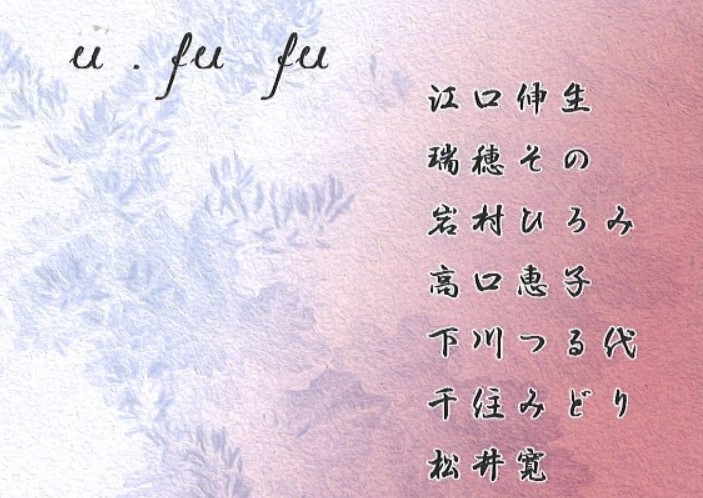 u . fu fu
江口伸生
瑞穂その
岩村ひろみ
高口恵子
下川つる代
千住みどり
松井寛